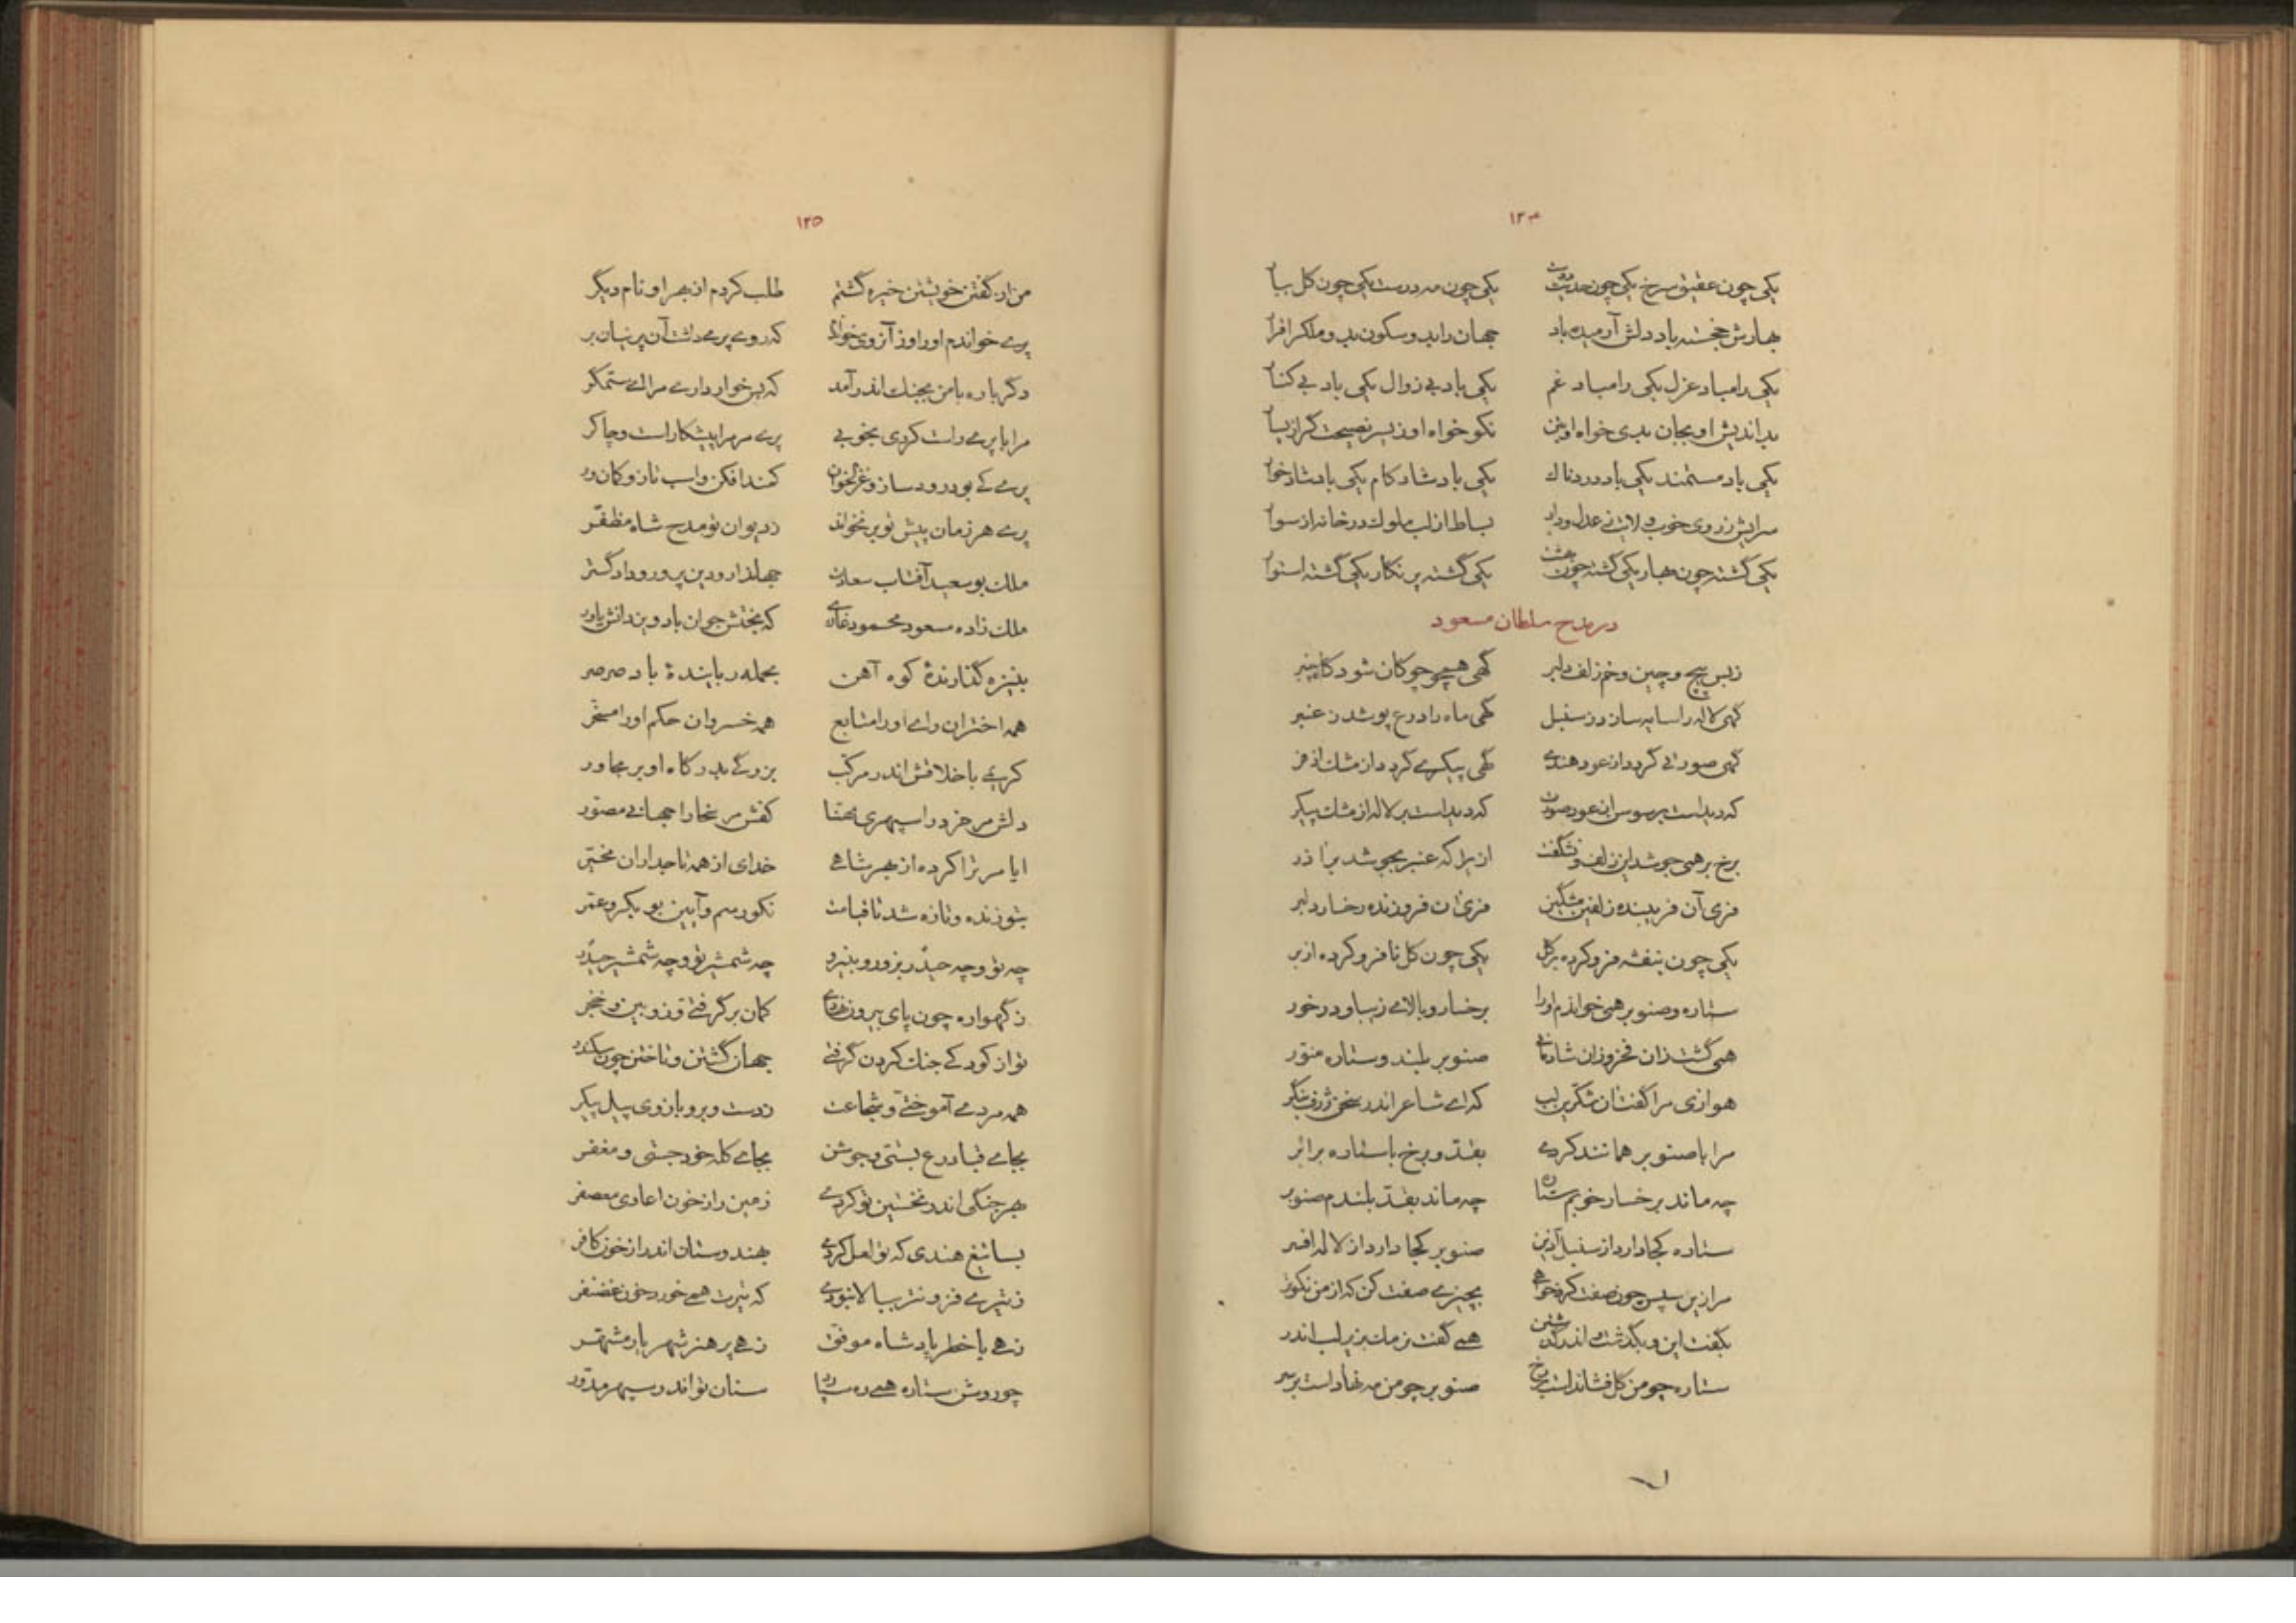 ۱۲۴
یکی چون عقیق سرخ یکی چون حدیث دوست یکی چون مه درست یکی چون گل ببار
بهارش خجسته باد دلش آرمیده باد جهان را بدو سکون بدو ملک را قرار
یکی را مباد عزل یکی را مباد غم یکی باد بی زوال یکی باد بی کنار
بداندیش او بجان بدی خواه او بتن نکو خواه او ز بسر نصیحت گر از یسار
یکی باد مستمند یکی باد دردناک یکی باد شادکام یکی باد شادخوار
سرایش ز روی خوب ولایت ز عدل و داد بساط از لب ملوک در خانه از سوار
یکی گشته چون بهار یکی گشته چون بهشت یکی گشته پر نگار یکی گشته استوار
در مدح سلطان مسعود
ز بس پیچ و چین و خم زلف دلبر گهی همچو چوکان شود گاه چنبر
گهی لاله را سایه سازد ز سنبل گهی ماه را درع پوشد ز عنبر
گهی صورتی گردد از عود هندی گهی پیکری گردد از مشک اذفر
که دیداست بر سوسن از عود صورت که دیداست بر لاله از مشک پیکر
برخ بر همی جوشد این زلف و نشگفت ازیرا که عنبر بجوشد بر آذر
فری آن فریبنده زلفین مشگین فری آن فروزنده رخسار دلبر
یکی چون بنفشه فرو کرده بر گل یکی چون گل نا فرو کرده از بر
ستاره و صنوبر همی خواندم او را برخسار و بالای زیبا و درخور
همی گشت زان فخر و زان شادمانی صنوبر بلند و ستاره منور
هوازی مرا گفت آن شکرین لب که ای شاعر اندر سخن ژرف بنگر
مرا با صنوبر همانند کردی بقد و برخ با ستاره برابر
چه ماند برخسار خوبم ستاره چه ماند بقد بلندم صنوبر
ستاره کجا دارد از سنبل آذین صنوبر کجا دارد از لاله افسر
مرا زین سپس چون صفت کرد خواهی بچیزی صفت کن که از من نکوتر
بگفت این و بگذشت و اندر گذشتن همی گفت نرمک بزیر لب اندر
ستاره چو من گل فشاند است بر رخ صنوبر چو من مه نهاد است بر سر
۱۲۵
من از گفتن خویشتن خیره گشتم طلب کردم از بهر او نام دیگر
پری خواندم او را و ز آن روی خواندم که روی پری داشت آن پرنیان بر
دگر باره با من بجنگ اندر آمد که بس خوار داری مرا ای ستمگر
مرا با پری راست کردی بخوبی پری مر مرا پیشکار است و چاکر
پری کی بود رود ساز و غزلخوان کمند افکن و اسب تاز و کمان ور
پری هر زمان پیش تو بر نخواند ز دیوان تو مدح شاه مظفر
ملک بو سعید آفتاب سعادت جهاندار و دین پرور و داد گستر
ملک زاده مسعود محمود غازی که بختش جوان باد و یزدانش یاور
بنیزه گذارندهٔ کوه آهن بحمله ربایندهٔ باد صرصر
همه اختران رای او را متابع همه خسروان حکم او را مسخر
کریمی باخلاقش اندر مرکب بزرگی بدرگاه او بر مجاور
دلش مر خرد را سپهری مهنا کفش مر سخا را جهانی مصور
ایا مر ترا کرده از بهر شاهی خدای از همه تاجداران مخیر
بتو زنده و تازه شد تا قیامت نکو رسم و آیین بو بکر و عمر
چه تو و چه حیدر بزور و بنیرو چه شمشیر تو و چه شمشیر حیدر
ز گهواره چون پای بیرون نهادی کمان بر گرفتی و زوبین و خنجر
تو از کودکی جنگ کردن گرفتی جهان گشتن و تاختن چون سکندر
همه مردمی آموختی و شجاعت ز دست و بر و بازوی پیل پیکر
بجای قبا درع بستی و جوشن بجای کله خود جستی و مغفر
بهر جنگی اندر نخستین تو کردی زمین را ز خون اعادی معصفر
بسا تیغ هندی که تو لعل کردی بهندوستان اندر از خون کافر
ز تیری فزونتر ببالا نبودی که تیرت همی خورد خون غضنفر
زهی با خطر پادشاه موفق زهی پر هنر شهریار مشهر
چو روش ستاره همی ره سپارد سنان تو اندر سپهر مدور